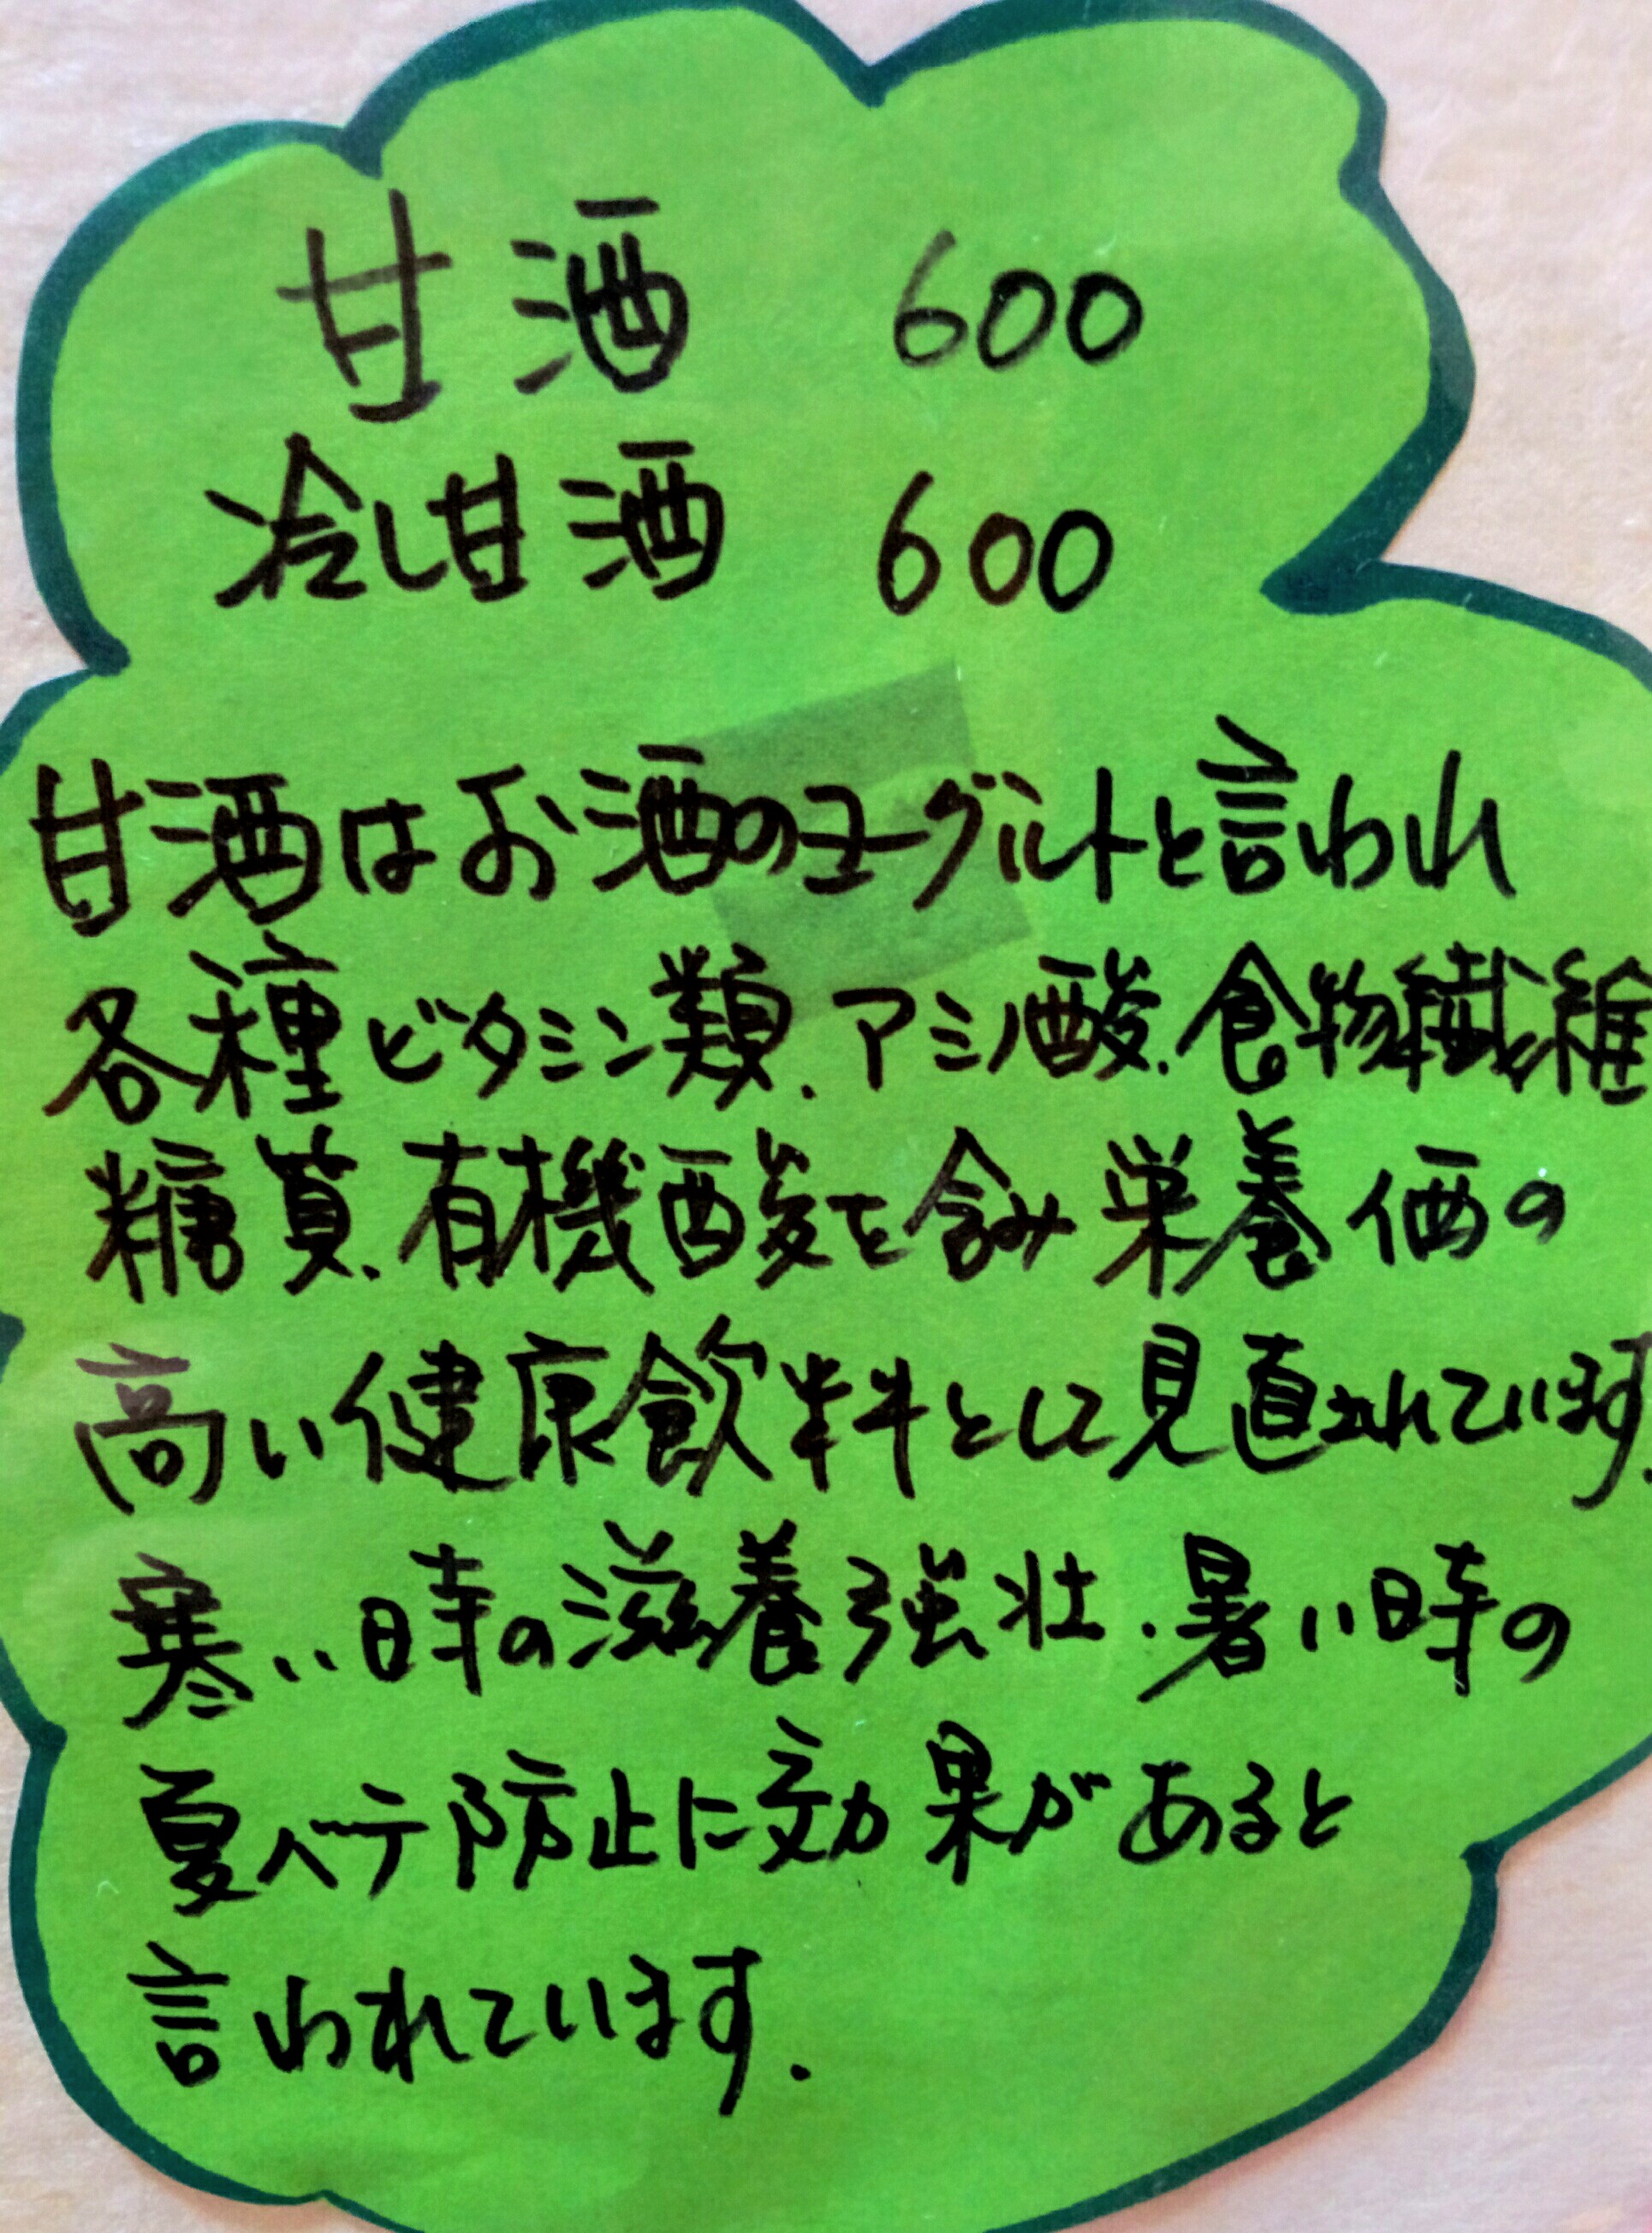 甘酒 600
冷し甘酒 600
甘酒はお酒のヨーグルトと言われ
各種ビタミン類.アミノ酸.食物繊維
糖質.有機酸を含み栄養価の
高い健康飲料として見直されています.
寒い時の滋養強壮.暑い時の
夏バテ防止に効果があると
言われています.